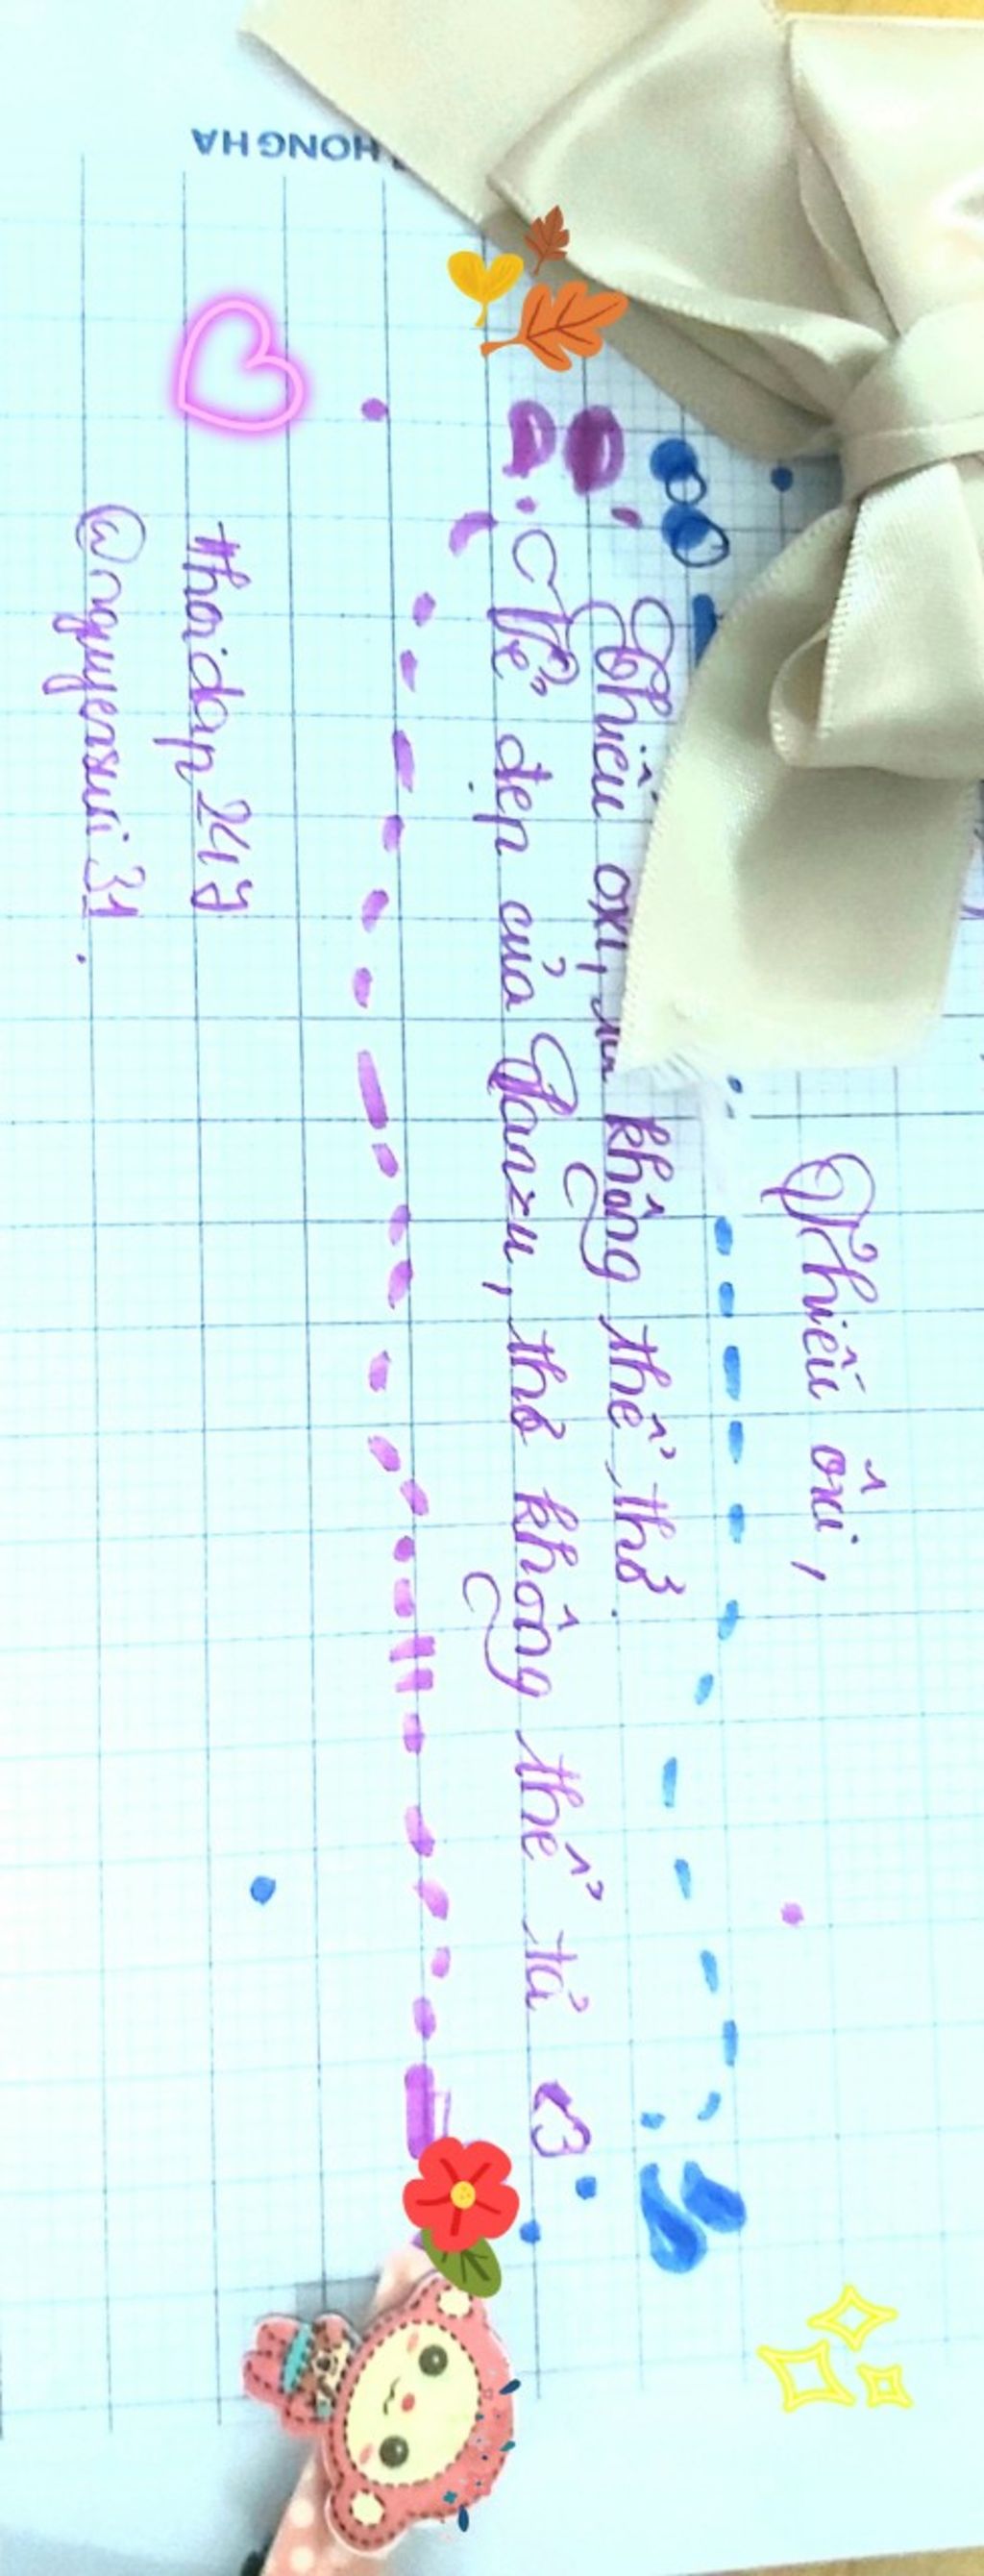 HONG HA
Thiếu ôxi,
Thiếu oxi, ta không thể thở.
Vẻ đẹp của Yanzu, thở không thể tả <3
#hoidap247
@nguyensuri31.